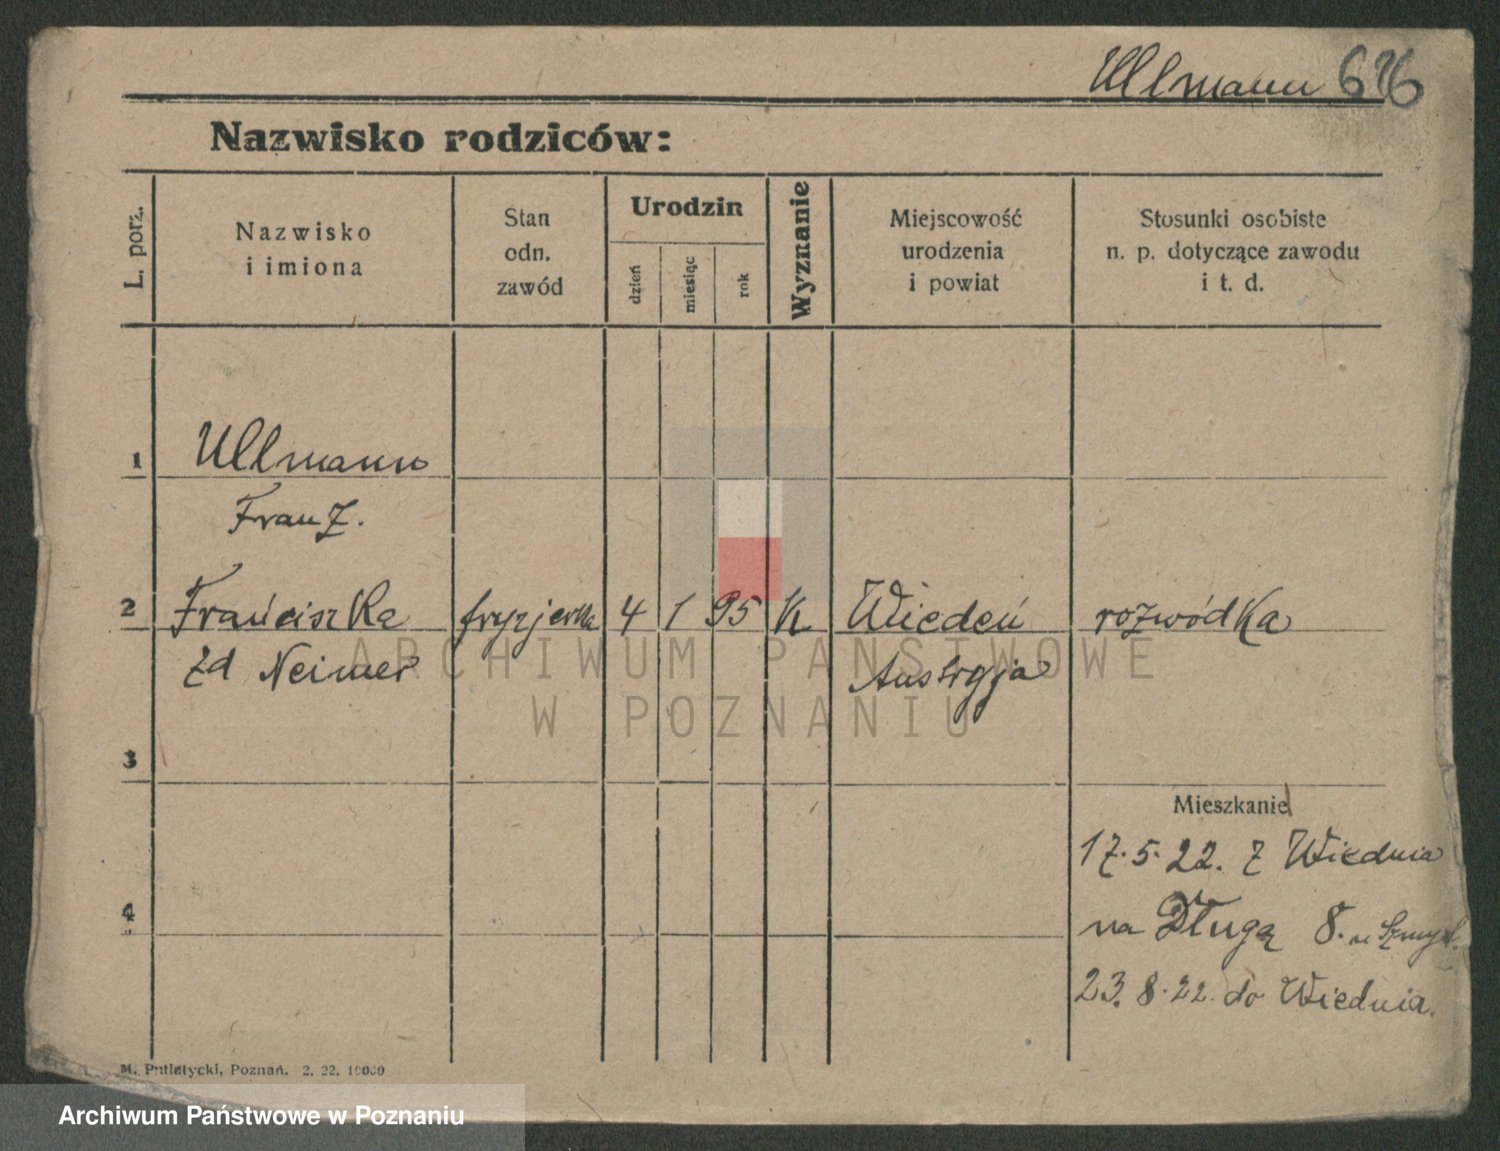 Ullmann 676
Nazwisko rodziców:
L. porz.
Nazwisko
i imiona
Stan
odn.
zawód
Urodzin
dzień
miesiąc
rok
Wyznanie
Miejscowość
urodzenia
i powiat
Stosunki osobiste
n. p. dotyczące zawodu
i t. d.
1 Ullmann
Franz.
2 Franciszka fryzjerka 4 1 95 K Wiedeń rozwódka
zd Neimer Austryja
ARCHIWUM PAŃSTWOWE
W POZNANIU
3
Mieszkanie
17.5.22. z Wiednia
4
na Długą 8. u
23.8.22. do Wiednia.
M. Putiatycki, Poznań. 2. 22. 10000
Archiwum Państwowe w Poznaniu